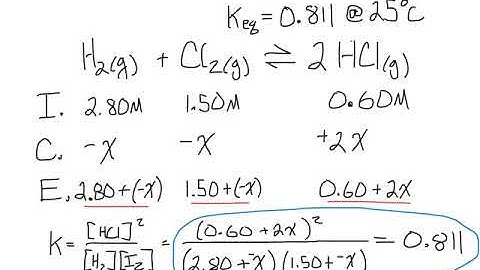 Keq = 0.811 @ 25°C
H₂(g) + Cl₂(g) ⇌ 2 HCl(g)
I. 2.80M 1.50M 0.60M
C. -x -x +2x
E. 2.80+(-x) 1.50+(-x) 0.60+2x
K = [HCl]² / [H₂][I₂] = (0.60+2x)² / (2.80+-x)(1.50+-x) = 0.811